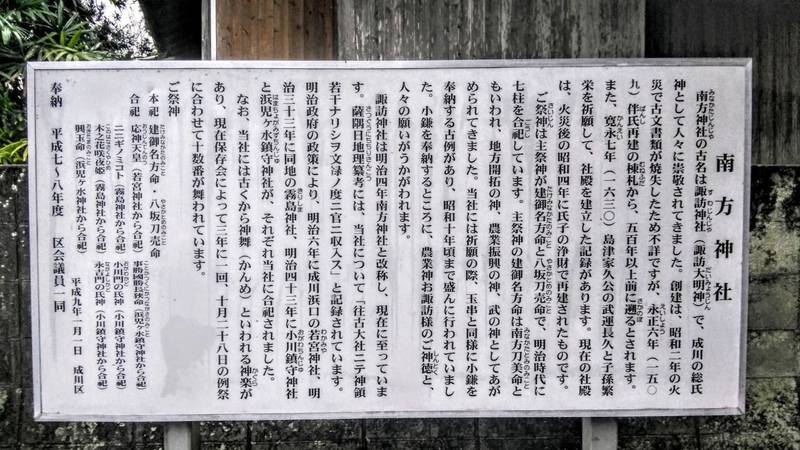 南方神社
南方神社の古名は諏訪神社（諏訪大明神）で、成川の総氏
神として人々に崇敬されてきました。創建は、昭和二年の火
災で古文書類が焼失したため不詳ですが、永正六年（一五〇
九）伴氏再建の棟札から、五百年以上前に遡るとされます。
また、寛永七年（一六三〇）島津家久公の武運長久と子孫繁
栄を祈願して、社殿を建立した記録があります。現在の社殿
は、火災後の昭和四年に氏子の浄財で再建されたものです。
ご祭神は主祭神が建御名方命と八坂刀売命で、明治時代に
七柱を合祀しています。主祭神の建御名方命は南方刀美命と
もいわれ、地方開拓の神、農業振興の神、武の神としてあが
められてきました。当社には祈願の際、玉串と同様に小鎌を
奉納する古例があり、昭和十年頃まで盛んに行われていまし
た。小鎌を奉納するところに、農業神お諏訪様のご神徳と、
人々の願いがうかがわれます。
諏訪神社は明治四年南方神社と改称し、現在に至っていま
す。薩隅日地理纂考には、当社について「往古大社ニテ神領
若干ナリシヲ文禄ノ度ニ官ニ収入ス」と記録されています。
明治政府の政策により、明治六年に成川浜口の若宮神社、明
治三十三年に同地の霧島神社、明治四十三年に小川鎮守神社
と浜児ヶ水鎮守神社が、それぞれ当社に合祀されました。
なお、当社には古くから神舞（かんめ）といわれる神楽が
あり、現在保存会によって三年に一回、十月二十八日の例祭
に合わせて十数番が舞われています。
ご祭神
本祀 建御名方命・八坂刀売命
合祀 応神天皇（若宮神社から合祀） 事勝國勝長狭命（浜児ヶ水鎮守神社から合祀）
ニニギノミコト（霧島神社から合祀） 小川門の氏神（小川鎮守神社から合祀）
木之花咲夜姫（霧島神社から合祀） 永吉門の氏神（小川鎮守神社から合祀）
興玉命（浜児ヶ水神社から合祀）
平成九年一月一日 成川区
奉納 平成七～八年度 区会議員一同